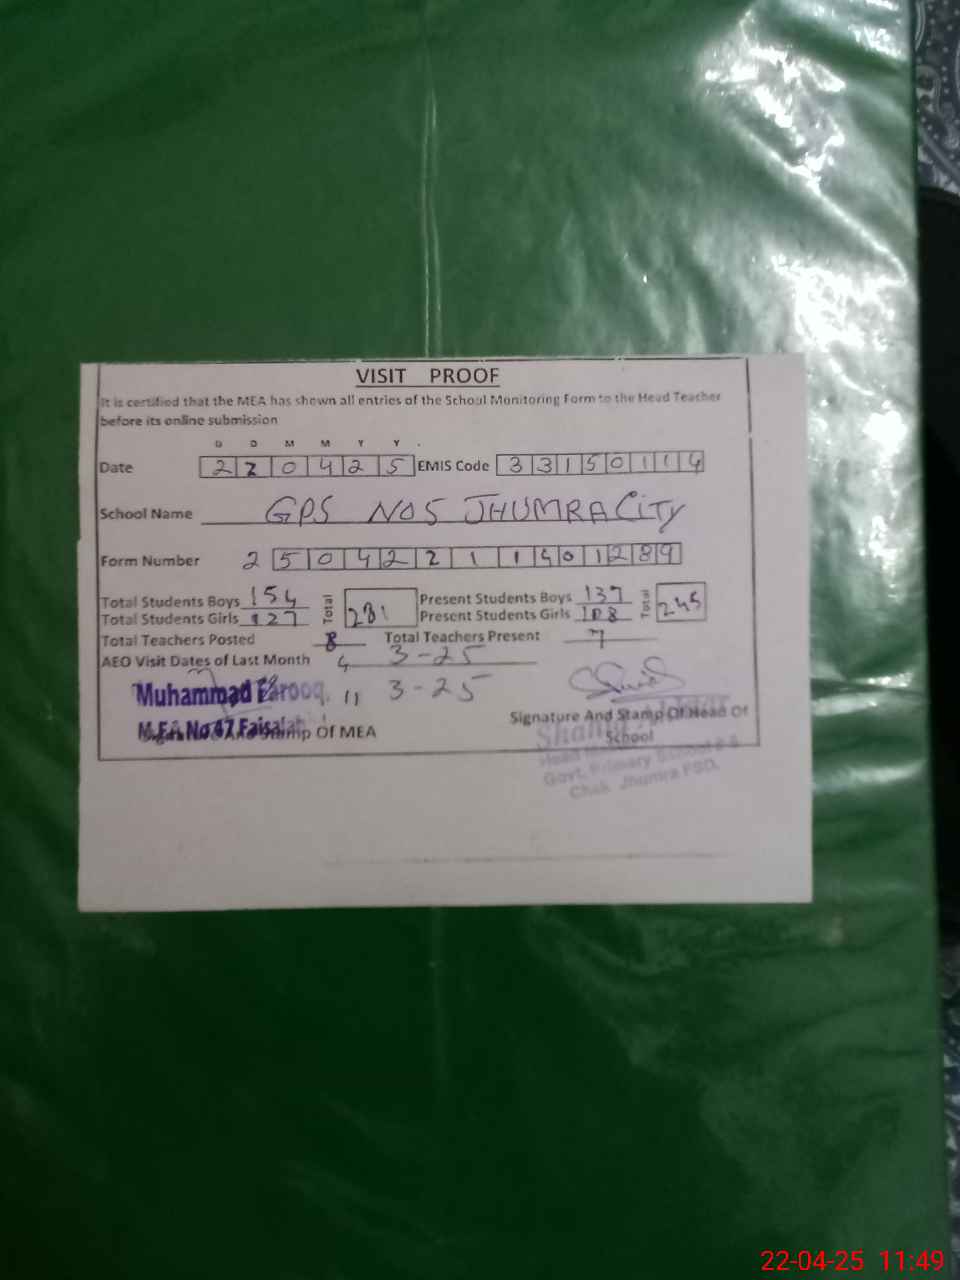 VISIT PROOF
It is certified that the MEA has shown all entries of the School Monitoring Form to the Head Teacher
before its online submission
D D M M Y Y
Date 2 2 0 4 2 5 EMIS Code 3 3 1 5 0 1 1 4
School Name GPS NO5 JHUMRA CITY
Form Number 2 5 0 4 2 2 1 1 4 0 1 2 8 9
Total Students Boys 154 Total 281 Present Students Boys 137 Total 245
Total Students Girls 127 Present Students Girls 108
Total Teachers Posted 8 Total Teachers Present 7
AEO Visit Dates of Last Month 4 3-25
Muhammad Farooq. 11 3-25
M.E.A No.47 Faisalab
Stamp OF MEA
Signature And Stamp Of Head Of
School
Govt. Primary School
Chak Jhumra FSD.
22-04-25 11:49